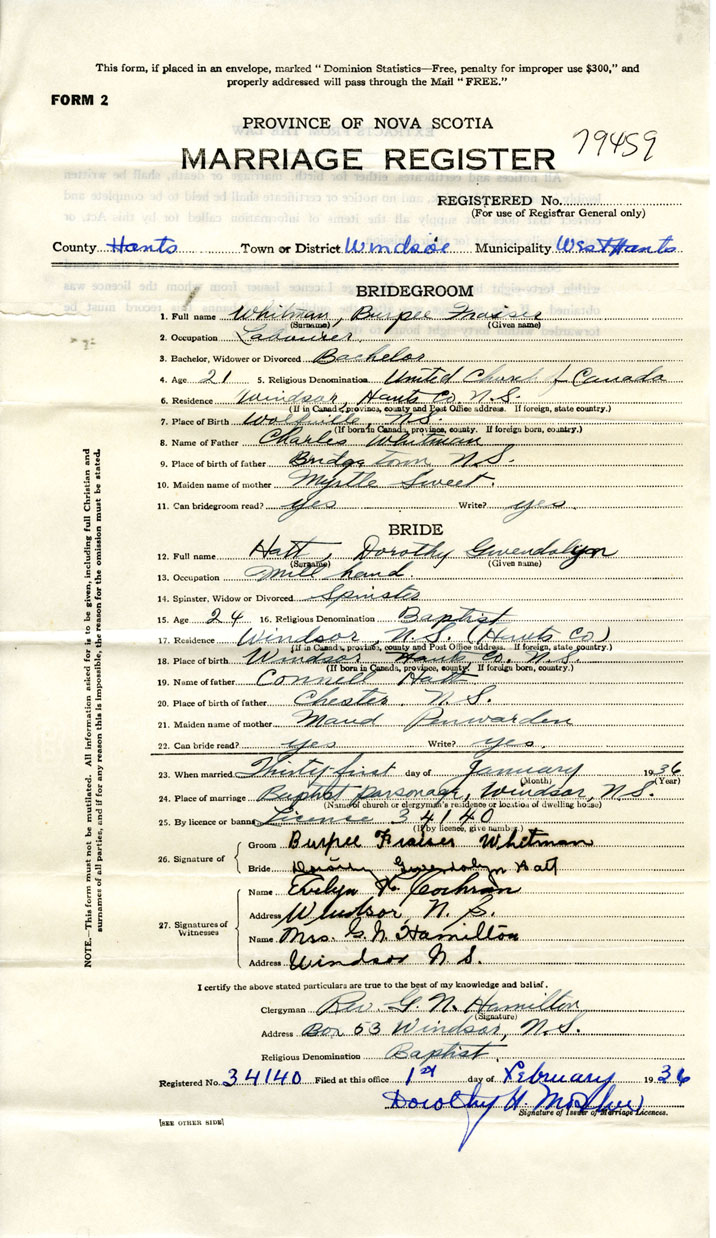 This form, if placed in an envelope, marked "Dominion Statistics—Free, penalty for improper use $300," and
properly addressed will pass through the Mail "FREE."
FORM 2
PROVINCE OF NOVA SCOTIA
79459
MARRIAGE REGISTER
REGISTERED No.
(For use of Registrar General only)
County Hants Town or District Windsor Municipality West Hants
BRIDEGROOM
1. Full name Whitman, Burpee Fraiser
(Surname) (Given name)
2. Occupation Labourer
3. Bachelor, Widower or Divorced Bachelor
4. Age 21 5. Religious Denomination United Church of Canada
6. Residence Windsor, Hants Co. N.S.
(If in Canada, province, county and Post Office address. If foreign, state country.)
7. Place of Birth Wolfville, N.S.
(If born in Canada, province, county. If foreign born, country.)
8. Name of Father Charles Whitman
9. Place of birth of father Bridgetown N.S.
10. Maiden name of mother Myrtle Sweet.
11. Can bridegroom read? yes Write? yes.
BRIDE
12. Full name Hatt, Dorothy Gwendolyn
(Surname) (Given name)
13. Occupation Mill hand.
14. Spinster, Widow or Divorced Spinster
15. Age 24 16. Religious Denomination Baptist
17. Residence Windsor, N.S. (Hants Co)
(If in Canada, province, county and Post Office address. If foreign, state country.)
18. Place of birth Windsor Hants Co. N.S.
(If born in Canada, province, county. If foreign born, country.)
19. Name of father Connell Hatt
20. Place of birth of father Chester, N.S.
21. Maiden name of mother Maud Penwarden
22. Can bride read? yes Write? yes.
23. When married Thirty-first day of January 1936
(Month) (Year)
24. Place of marriage Baptist parsonage, Windsor, N.S.
(Name of church or clergyman's residence or location of dwelling house)
25. By licence or banns License 34140
(If by licence, give number.)
26. Signature of
Groom Burpee Fraiser Whitman
Bride Dorothy Gwendolyn Hatt
27. Signatures of Witnesses
Name Evelyn K. Cochran
Address Windsor N.S.
Name Mrs. G. N. Hamilton
Address Windsor N.S.
I certify the above stated particulars are true to the best of my knowledge and belief.
Clergyman Rev. G. N. Hamilton
(Signature)
Address Box 53 Windsor, N.S.
Religious Denomination Baptist.
Registered No. 34140 Filed at this office 1st day of February 1936
Dorothy H.
Signature of Issuer of Marriage Licences.
[SEE OTHER SIDE]
NOTE.—This form must not be mutilated. All information asked for is to be given, including full Christian and
surnames of all parties, and if for any reason this is impossible, the reason for the omission must be stated.